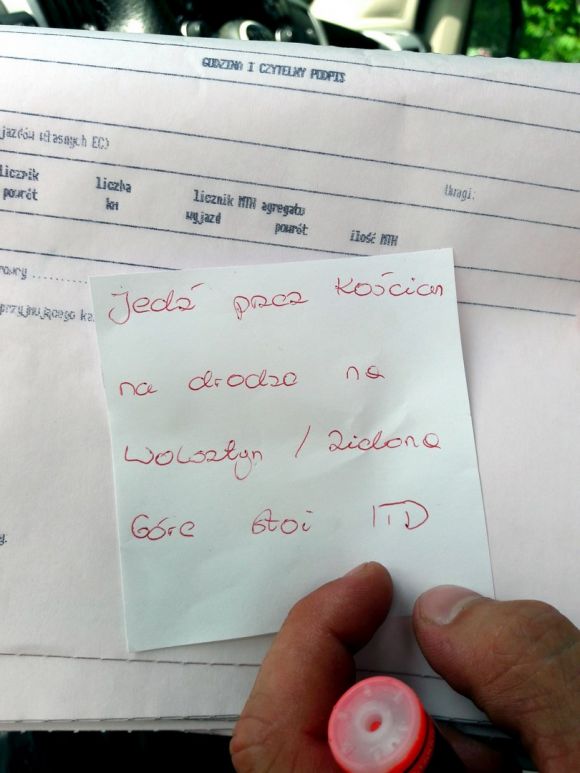 GODZINA I CZYTELNY PODPIS
jazdów własnych EC)
licznik liczba licznik MTH agregatu Uwagi:
powrót km wyjazd powrót ilość MTH
rowcy ..........
przyjmującego ka
Jedź przez Kościan
na drodze na
Wolsztyn / Zielona
Górę stoi ITD
y.